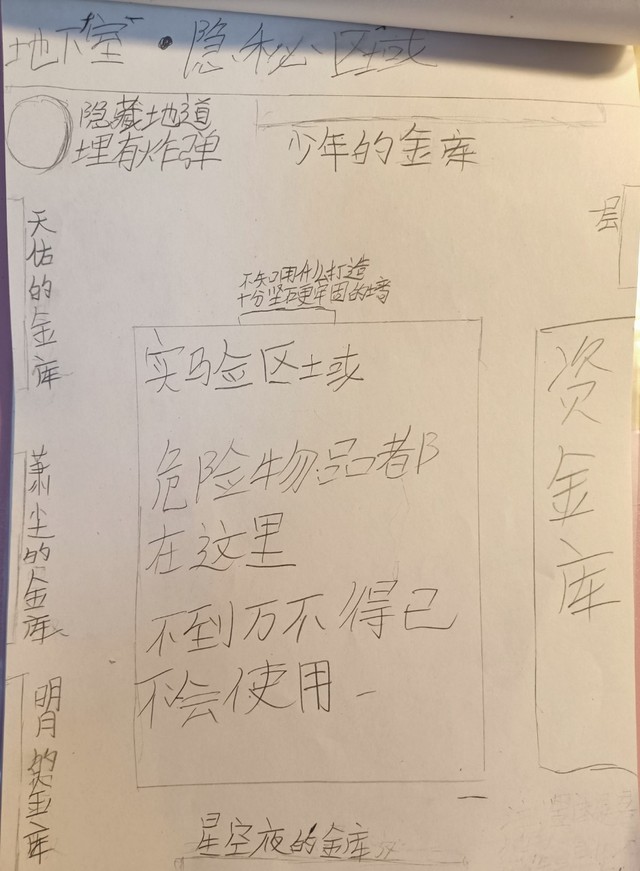 地下室·隐秘区域
隐藏地道
埋有炸弹
少年的金库
天佑的金库
层
不知用什么打造
十分坚硬牢固的墙
实验区域
危险物品都
在这里
不到万不得已
不会使用
资金库
萧尘的金库
明月的金库
星空夜的金库